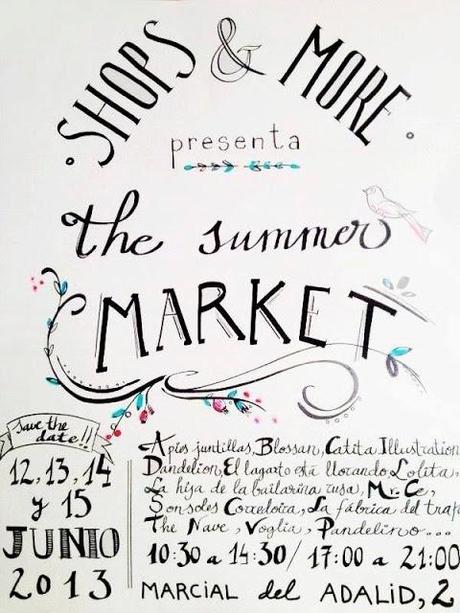 SHOPS & MORE
presenta
the summer
MARKET
save the
date!!
12, 13, 14
y 15
JUNIO
2013
Apies juntillas, Blossan, Catita Illustration
Dandelion, El lagarto está llorando, Lolita,
La hija de la bailarina rusa, Mr. Ce,
Sonsoles Corredoira, La fábrica del trap
The Nave, Voglia, Pandelino...
10:30 a 14:30/ 17:00 a 21:00
MARCIAL del ADALID, 2